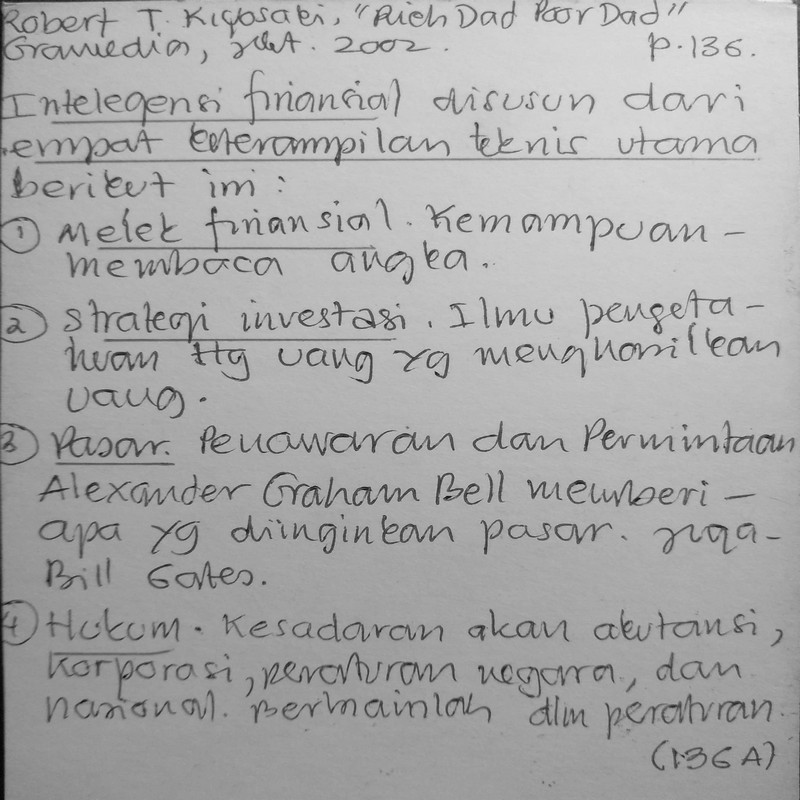 Robert T. Kiyosaki, "Rich Dad Poor Dad"
Gramedia, Jkt. 2002. p.136.
Intelegensi finansial disusun dari
empat keterampilan teknis utama
berikut ini:
① Melek finansial. Kemampuan -
membaca angka.
② Strategi investasi. Ilmu pengeta-
huan ttg uang yg menghasilkan
uang.
③ Pasar. Penawaran dan Permintaan
Alexander Graham Bell memberi -
apa yg diinginkan pasar. Juga -
Bill Gates.
④ Hukum. Kesadaran akan akutansi,
korporasi, peraturan negara, dan
nasional. Bermainlah dlm peraturan.
(136A)